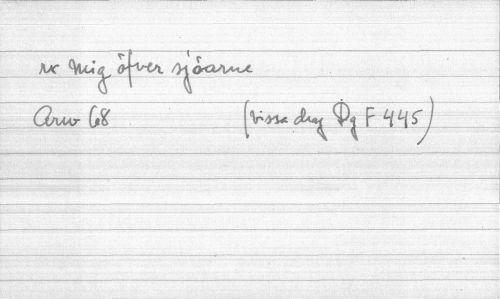 rx mig öfver sjöarne
Arw 68 (vissa drag Dg F 445)